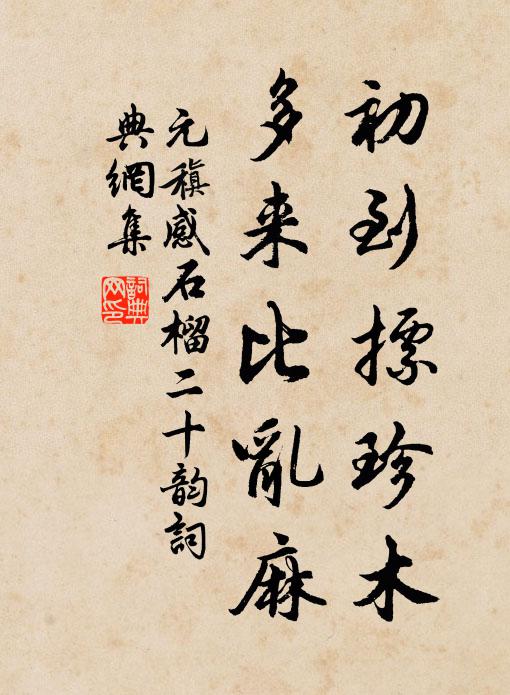 初到摽珍木
多来比亂麻
元稹感石榴二十韵詞
典網集
詞典
网印